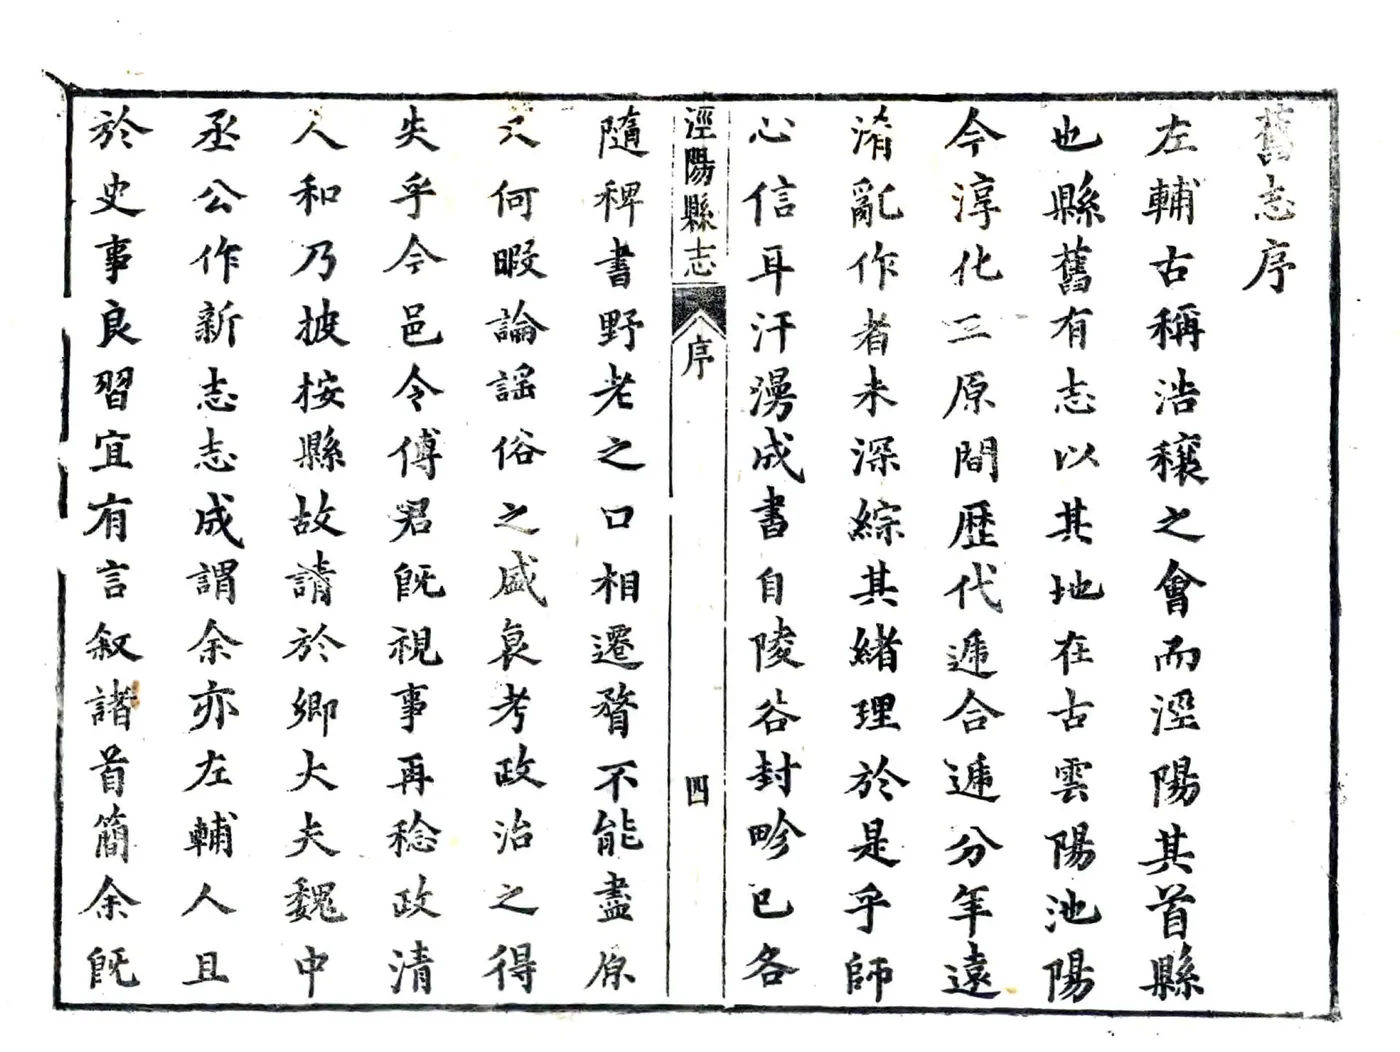 舊志序
左輔古稱浩穰之會而涇陽其首縣
也縣舊有志以其地在古雲陽池陽
今淳化三原間歷代遞合遞分年遠
淆亂作者未深綜其緒理於是乎師
心信耳汗漫成書自陵谷封畛已各
涇陽縣志
序
四
隨稗書野老之口相遷瞀不能盡原
又何暇論謠俗之盛衰考政治之得
失乎今邑令傅君旣視事再稔政清
人和乃披按縣故請於鄉大夫魏中
丞公作新志志成謂余亦左輔人且
於史事良習宜有言叙諸首簡余旣